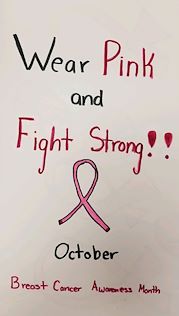 Wear Pink
and
Fight Strong!!
October
Breast Cancer Awareness Month